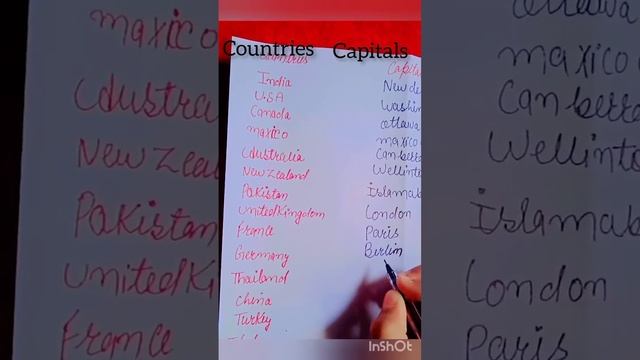 Countries Capitals
Capita
India New de
U.S.A Washin
Canada ottawa
maxico maxico
Australia Canberra
New Zealand Wellinto
Pakistan Islamab
United Kingdom London
France Paris
Germany Berlin
Thailand
China
Turkey
InShOt
maxico
Austra
New Zea
Pakistan
United Ki
France
ottawa
maxico
Canberra
Wellinto
Islamab
London
Paris